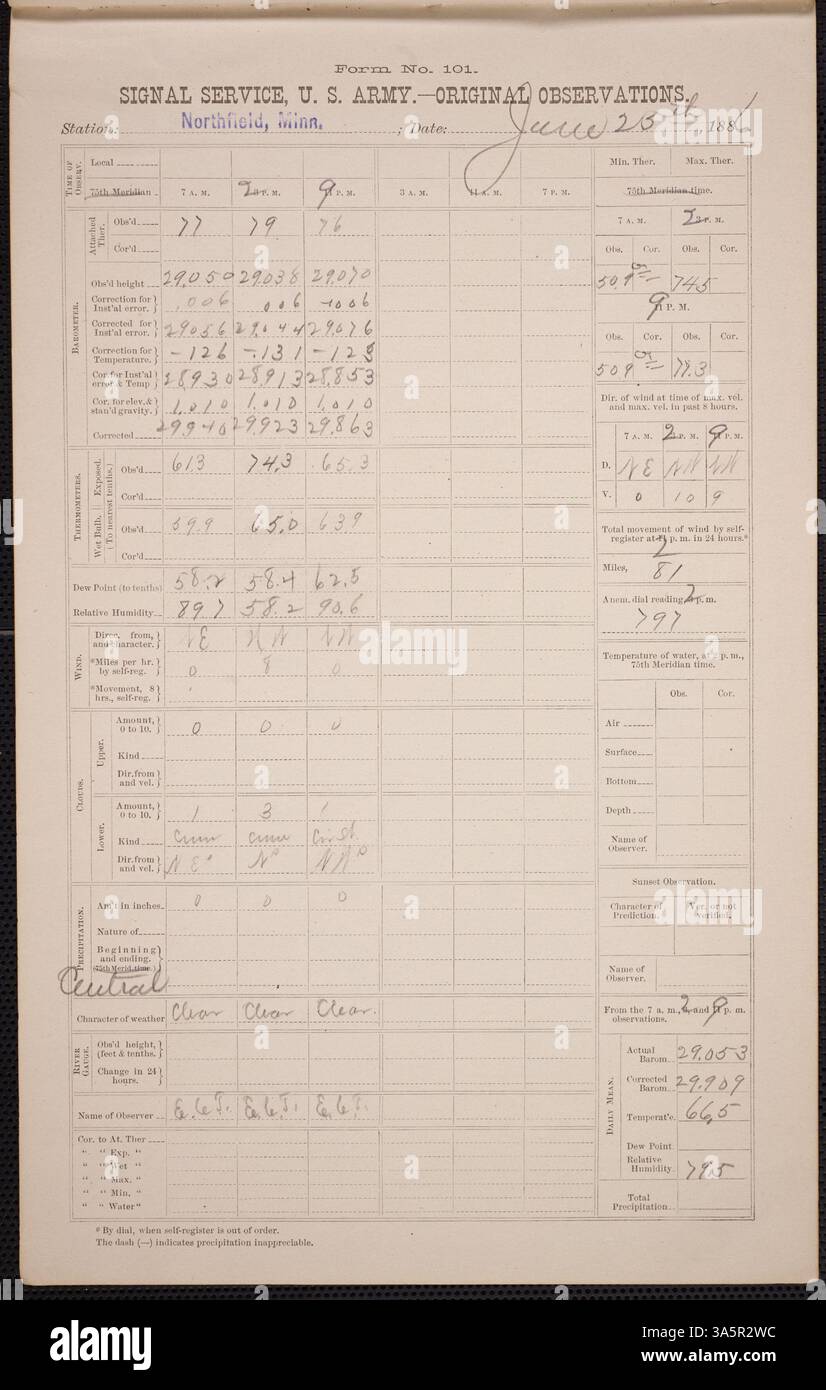 Form No. 101.
SIGNAL SERVICE, U. S. ARMY.—ORIGINAL OBSERVATIONS.
Station: Northfield, Minn. ; Date: June 25th, 1886
TIME OF OBSERV.
Local
75th Meridian 7 A. M. 2 P. M. 9 P. M. 3 A. M. 11 A. M. 7 P. M.
Attached Ther.
Obs'd 77 79 76
Cor'd
BAROMETER.
Obs'd height 29.050 29.038 29.070
Correction for Inst'al error. .006 006 +006
Corrected for Inst'al error. 29056 29.044 29.076
Correction for Temperature. -126 -.131 -123
Cor. for Inst'al error & Temp 28,930 28,913 28.853
Cor. for elev. & stan'd gravity. 1.010 1.010 1.010
Corrected 29940 29.923 29.863
THERMOMETERS.
(To nearest tenths.)
Exposed.
Obs'd 61.3 74.3 65.3
Cor'd
Wet Bulb.
Obs'd 59.9 65.0 63.9
Cor'd
Dew Point (to tenths) 58.2 58.4 62.5
Relative Humidity 89.7 58.2 90.6
WIND.
Direc. from, and character. NE NW NW
*Miles per hr. by self-reg. 0 8 0
*Movement, 8 hrs., self-reg.
CLOUDS.
Upper.
Amount, 0 to 10. 0 0 0
Kind
Dir. from and vel.
Lower.
Amount, 0 to 10. 1 3 1
Kind cum cum
Dir. from and vel. NE° N° NW°
PRECIPITATION.
Am't in inches. 0 0 0
Nature of
Beginning and ending. (75th Merid. time.)
Central
Character of weather Clear Clear Clear.
RIVER GAUGE.
Obs'd height, (feet & tenths.)
Change in 24 hours.
Name of Observer
Cor. to At. Ther
" " Exp. "
" " Wet "
" " Max. "
" " Min. "
" " Water "
* By dial, when self-register is out of order.
The dash (—) indicates precipitation inappreciable.
Min. Ther. Max. Ther.
75th Meridian time.
7 A. M. 2 P. M.
Obs. Cor. Obs. Cor.
50.9 74.5
9 P. M.
Obs. Cor. Obs. Cor.
50.9 77.3
Dir. of wind at time of max. vel. and max. vel. in past 8 hours.
7 A. M. 2 P. M. 9 P. M.
D. NE NW NW
V. 0 10 9
Total movement of wind by self-register at 2 p. m. in 24 hours.*
Miles, 81
Anem. dial reading, 2 p. m.
797
Temperature of water, at 2 p. m., 75th Meridian time.
Obs. Cor.
Air
Surface
Bottom
Depth
Name of Observer.
Sunset Observation.
Character of Prediction. Ver. or not verified.
Name of Observer.
From the 7 a. m., 2, and 9 p. m. observations.
DAILY MEAN.
Actual Barom. 29.053
Corrected Barom. 29.909
Temperat'e. 66.5
Dew Point
Relative Humidity. 79.5
Total Precipitation
alamy
alamy
Image ID: 3A5R2WC
www.alamy.com